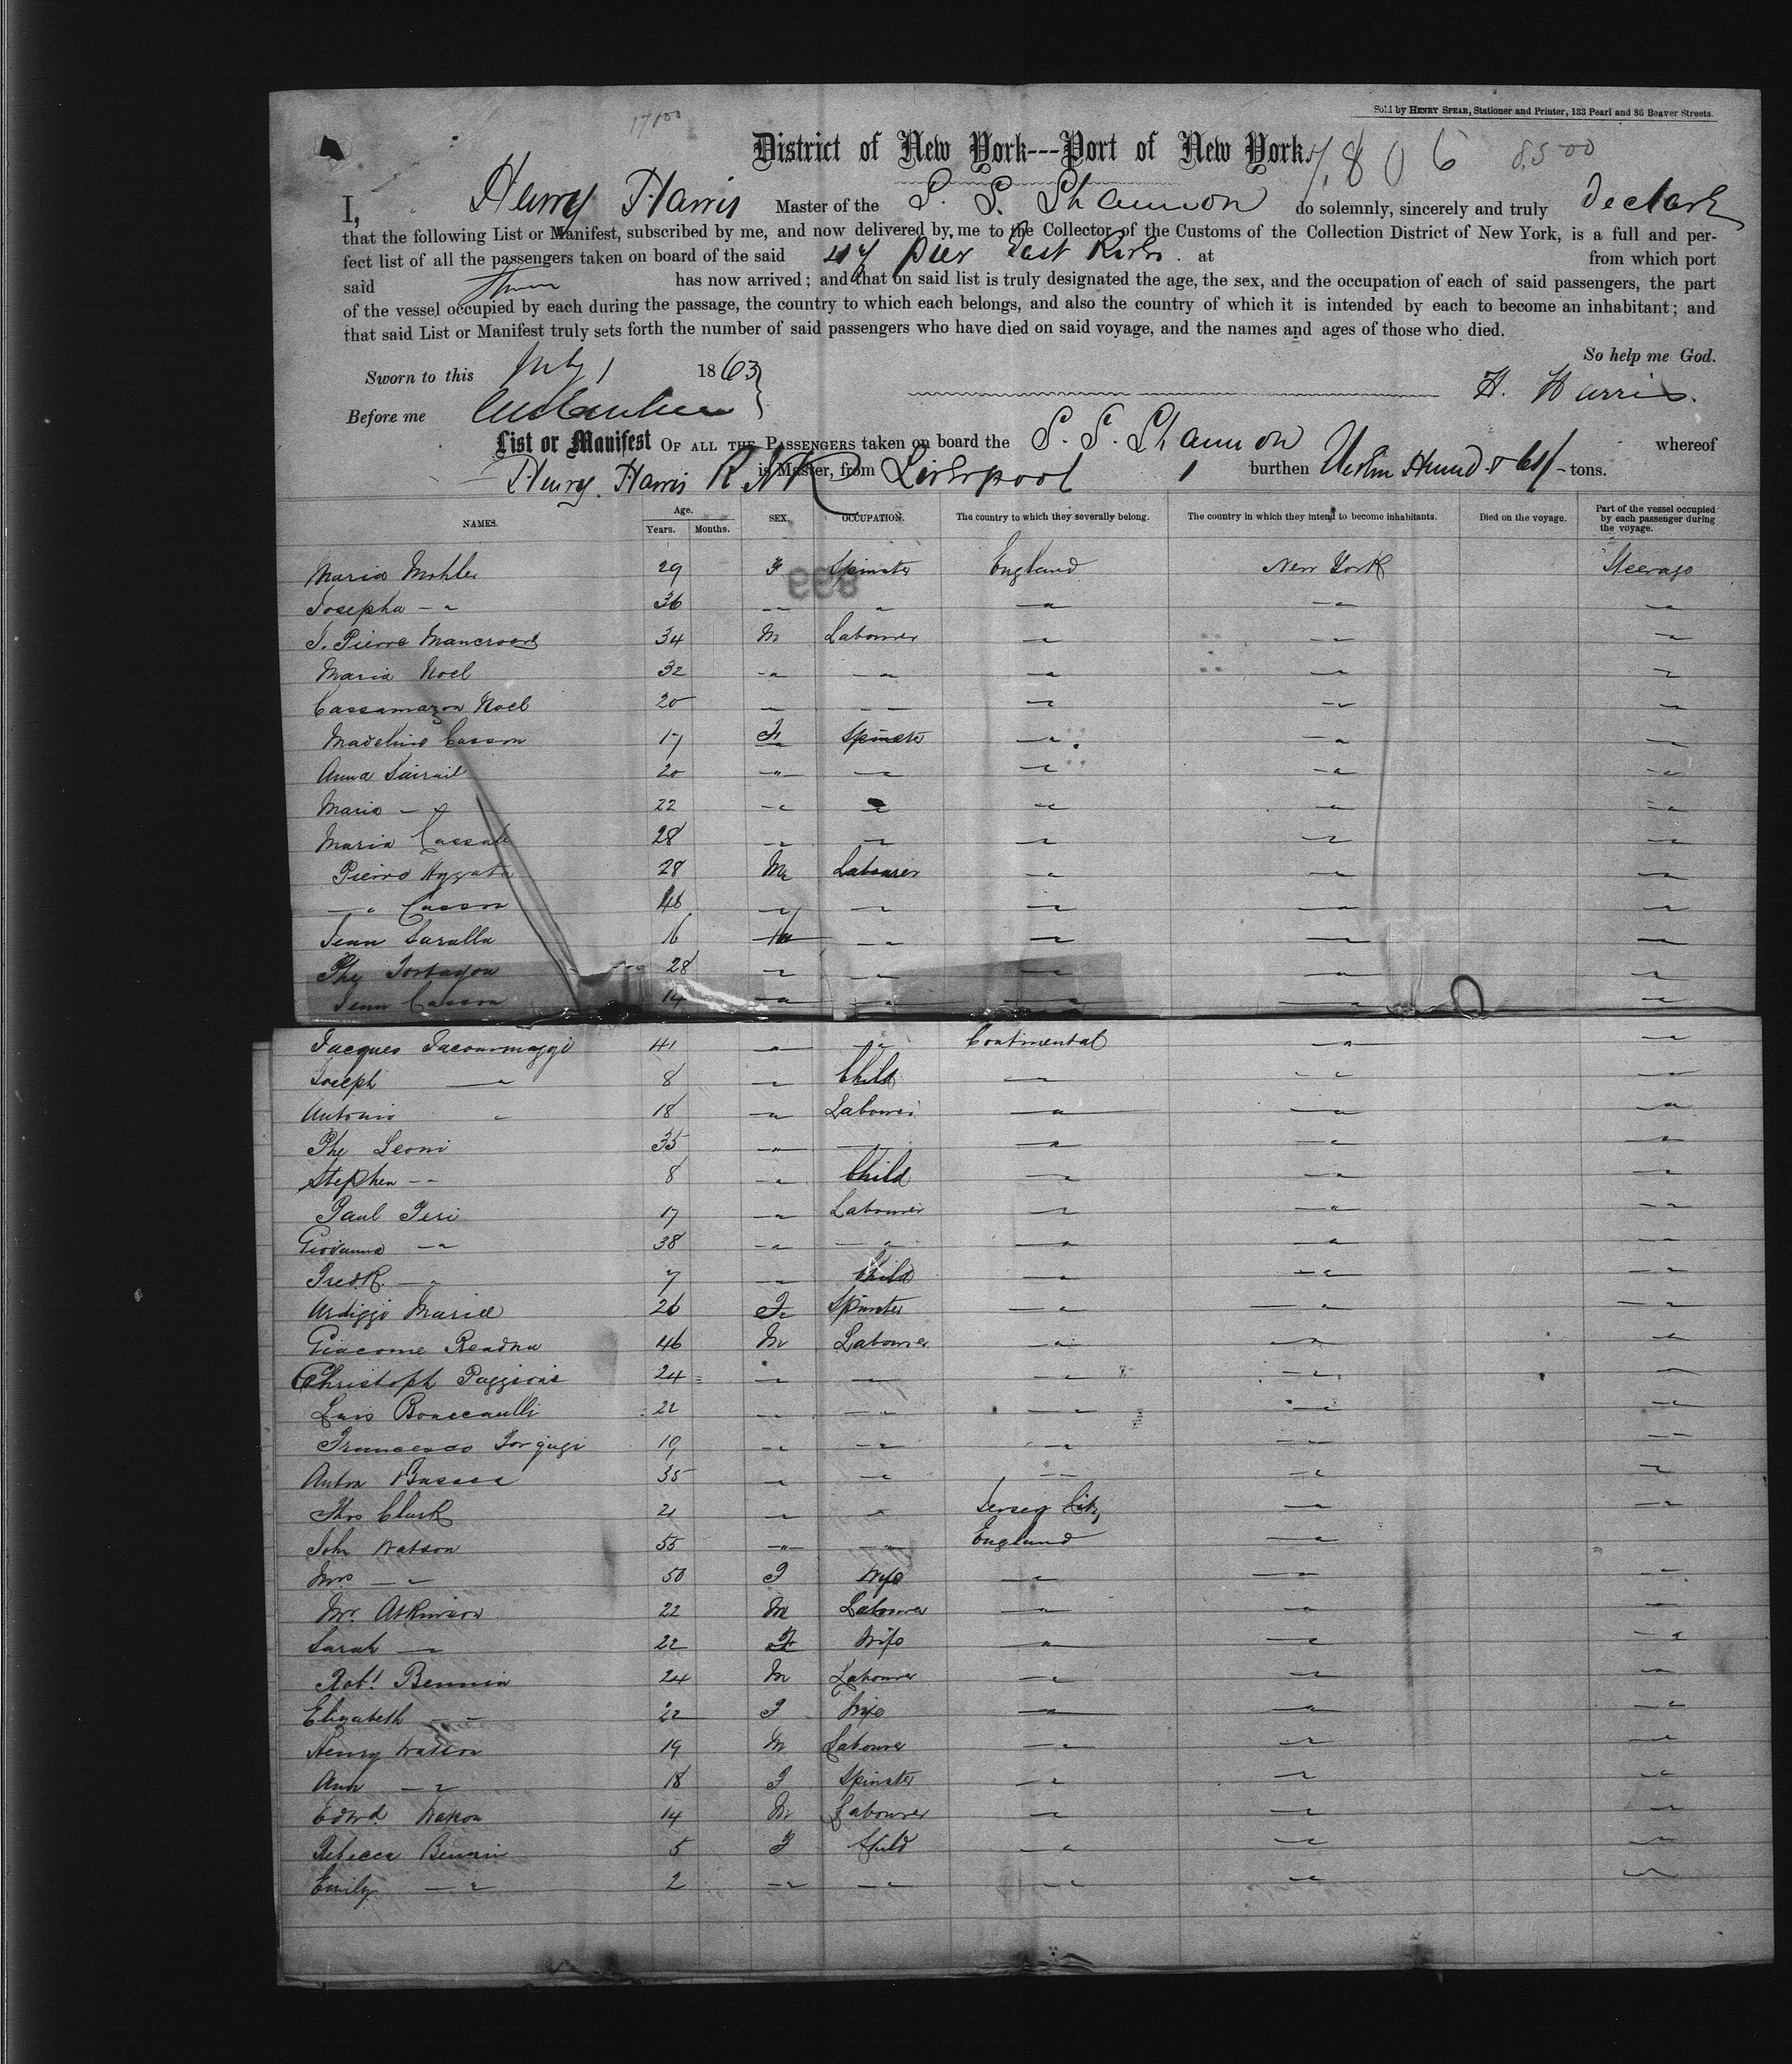 Sold by HENRY SPEAR, Stationer and Printer, 133 Pearl and 86 Beaver Streets.
17100
District of New York---Port of New York.
7,806 8,500
I, Henry Harris Master of the S. S. Shannon do solemnly, sincerely and truly declare
that the following List or Manifest, subscribed by me, and now delivered by me to the Collector of the Customs of the Collection District of New York, is a full and per-
fect list of all the passengers taken on board of the said 47 pier East River at from which port
said has now arrived; and that on said list is truly designated the age, the sex, and the occupation of each of said passengers, the part
of the vessel occupied by each during the passage, the country to which each belongs, and also the country of which it is intended by each to become an inhabitant; and
that said List or Manifest truly sets forth the number of said passengers who have died on said voyage, and the names and ages of those who died.
So help me God.
Sworn to this July 1 1863
H. Harris.
Before me
List or Manifest OF ALL THE PASSENGERS taken on board the S. S. Shannon whereof
Henry Harris R.N.R is Master, from Liverpool burthen tons.
NAMES. Age. Years. Months. SEX. OCCUPATION. The country to which they severally belong. The country in which they intend to become inhabitants. Died on the voyage. Part of the vessel occupied by each passenger during the voyage.
899
Maria Mohler 29 F Spinster England New York Steerage
Josepha - " 36 " " " " "
J. Pierre 34 M Labourer " " "
Maria Noel 32 " " " " "
Cassamazon Noel 20 " " " " "
Madeline Casson 17 F Spinster " " "
Anna 20 " " " " "
Maria - " 22 " " " " "
Maria Cassale 28 " " " " "
Pierre 28 M Labourer " " "
" Casson 46 " " " " "
Jean 16 M " " " "
Phe 28 " " " " "
Jean Casson 14 " " " " "
Jacques 41 " " Continental " "
Joseph " 8 " Child " " "
Antonio " 18 " Labourer " " "
Phe Leoni 35 " " " " "
Stephen - " 8 " Child " " "
Paul Peri 17 " Labourer " " "
Giovanna " 38 " " " " "
Fredk. " 7 " Child " " "
Ardiggo 26 F Spinster " " "
Giacome Readna 46 M Labourer " " "
Christoph 24 " " " " "
Luis 22 " " " " "
Francesco 19 " " " " "
Anton 35 " " " " "
Thos Clark 21 " " Jersey City " "
John Watson 55 " " England "
Mrs " 50 F Wife " " "
Mr. Atkinson 22 M Labourer " " "
Sarah " 22 F Wife " " "
Robt. Bennin 24 M Labourer " " "
Elizabeth " 22 F Wife " " "
Henry Watson 19 M Labourer " " "
Ann " 18 F Spinster " " "
Edwd. Watson 14 M Labourer " " "
Rebecca Bennin 5 F Child " " "
Emily " 2 " " " " "